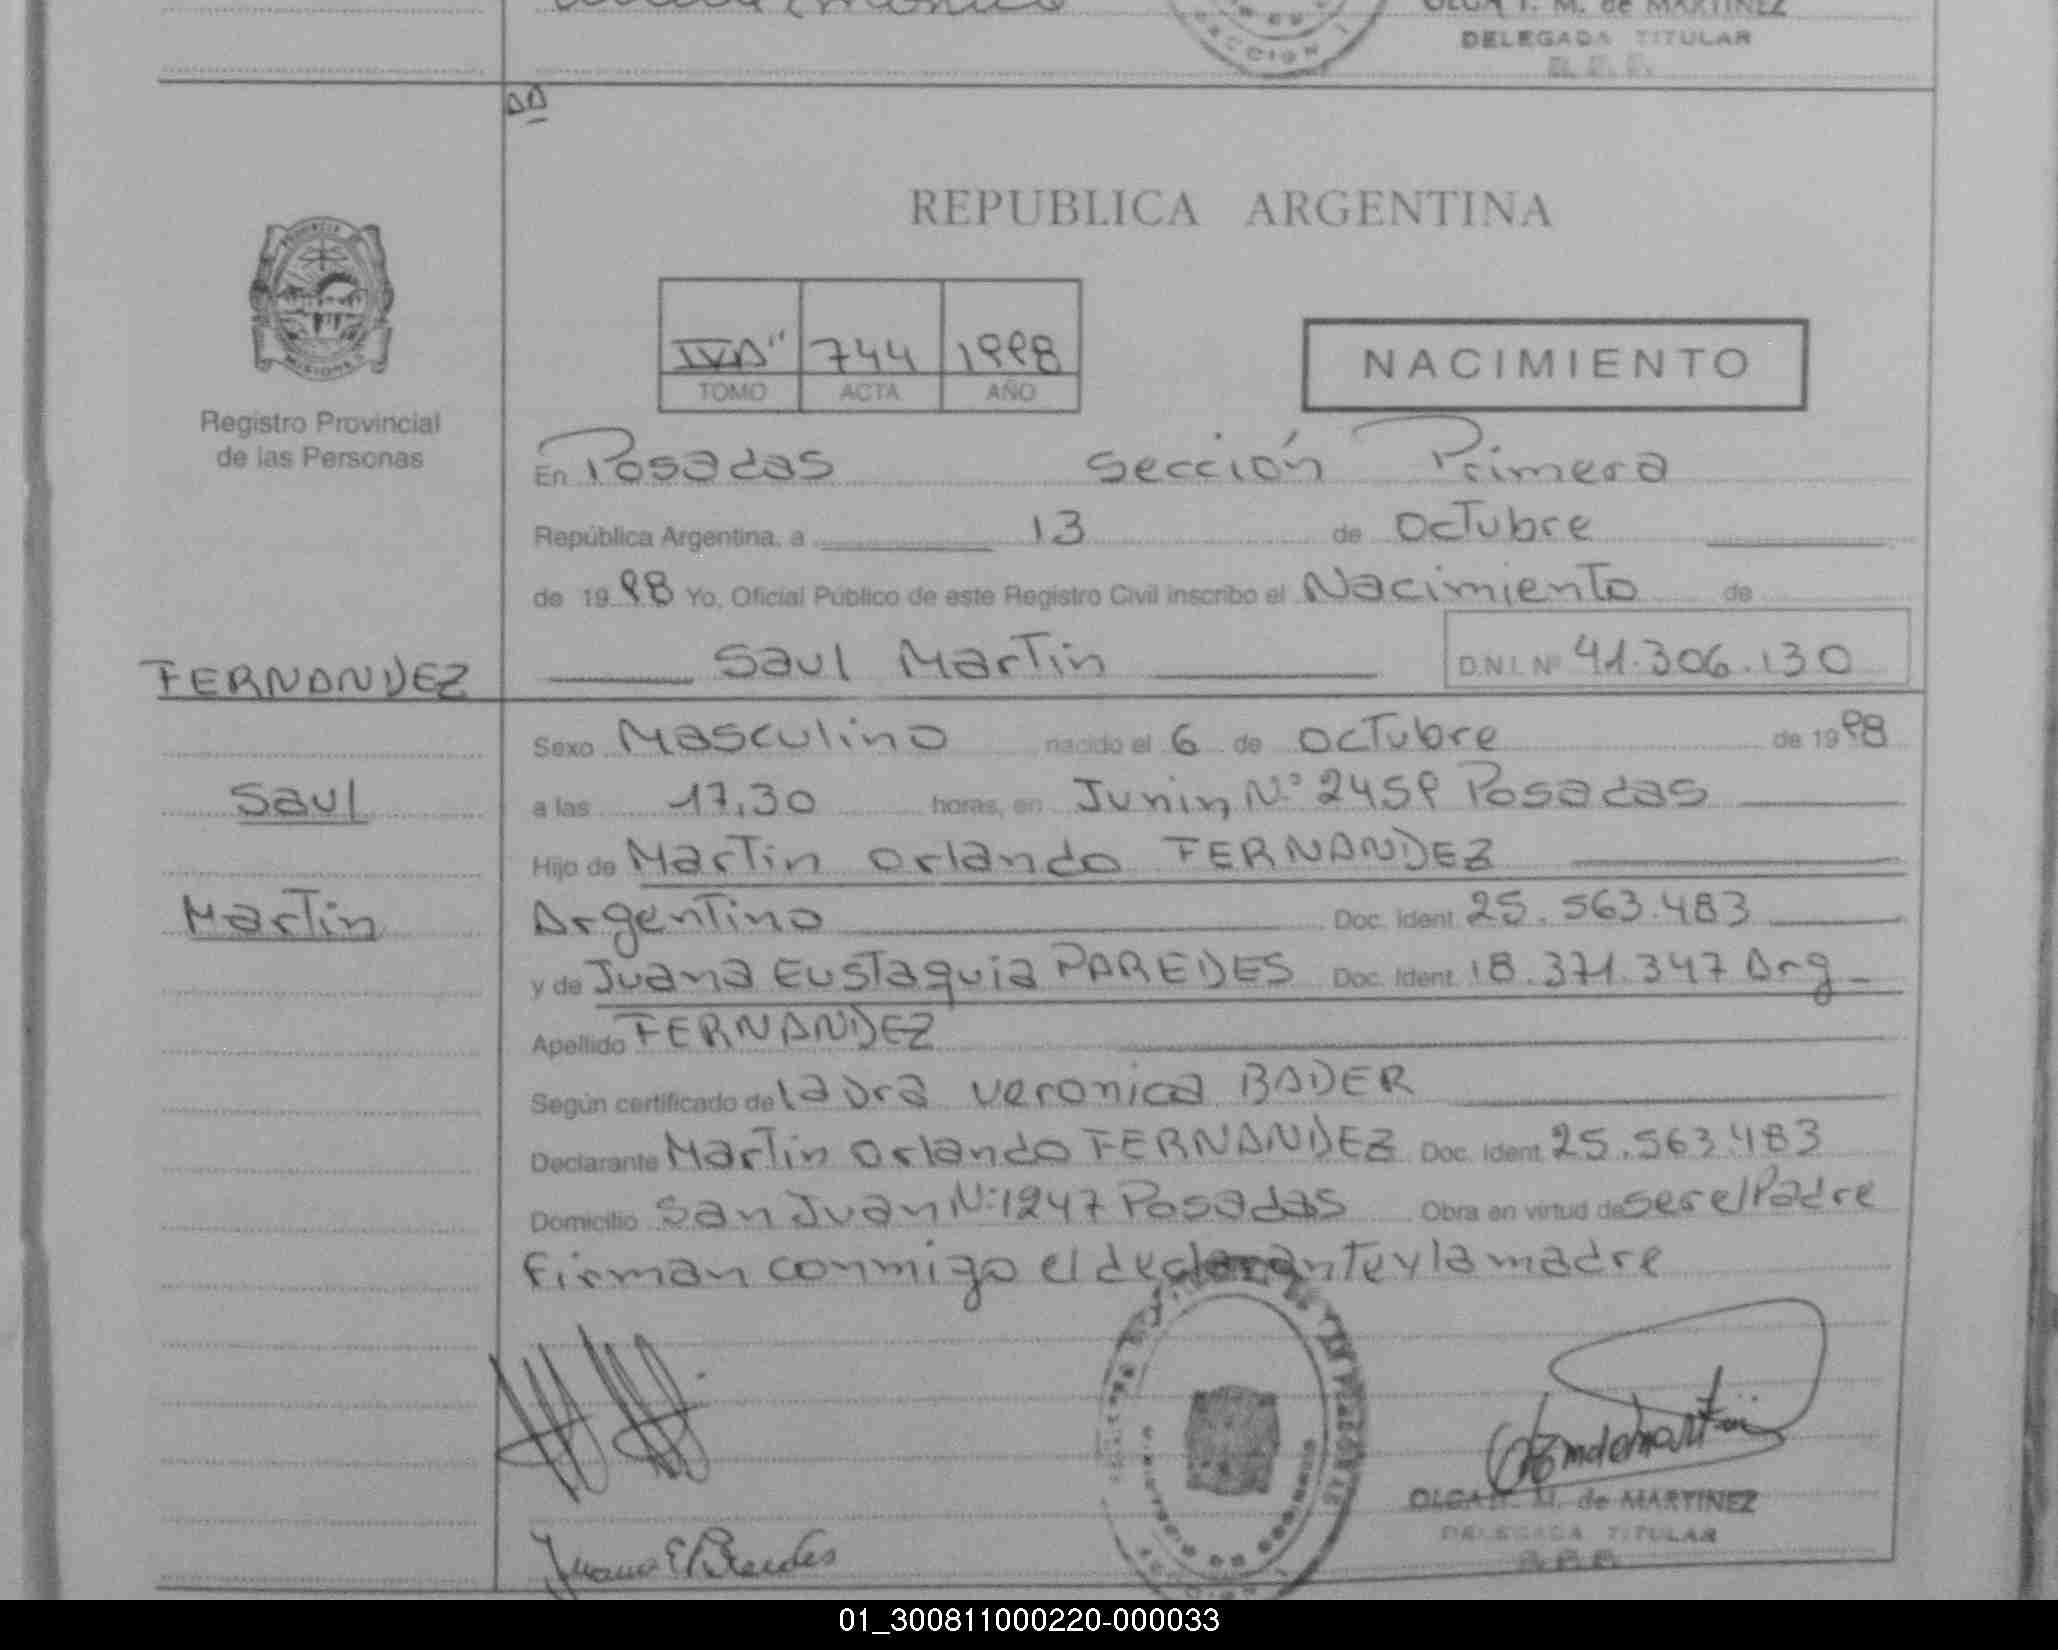 OLGA T. M. de MARTINEZ
DELEGADA TITULAR
R. P. P.
SECCION 1
REPUBLICA ARGENTINA
PROVINCIA DE
MISIONES
Registro Provincial
de las Personas
IV"A" 744 1998
TOMO ACTA AÑO
NACIMIENTO
En Posadas Sección Primera
República Argentina, a 13 de octubre
de 1998 Yo, Oficial Público de este Registro Civil inscribo el Nacimiento de
FERNANDEZ Saul Martin D.N.I. Nº 41.306.130
Sexo Masculino nacido el 6 de octubre de 1998
Saul a las 17,30 horas, en Junin, Nº 2459 Posadas
Hijo de Martin orlando FERNANDEZ
Martin Argentino Doc. Ident. 25.563.483
y de Juana Eustaquia PAREDES Doc. Ident. 18.371.347 Arg
Apellido FERNANDEZ
Según certificado de laura veronica BADER
Declarante Martin orlando FERNANDEZ Doc. Ident. 25.563.483
Domicilio San Juan Nº 1247 Posadas Obra en virtud de ser el Padre
firman conmigo el declarante y la madre
Juana E Paredes
M. de MARTINEZ
DELEGADA TITULAR
01_300811000220-000033